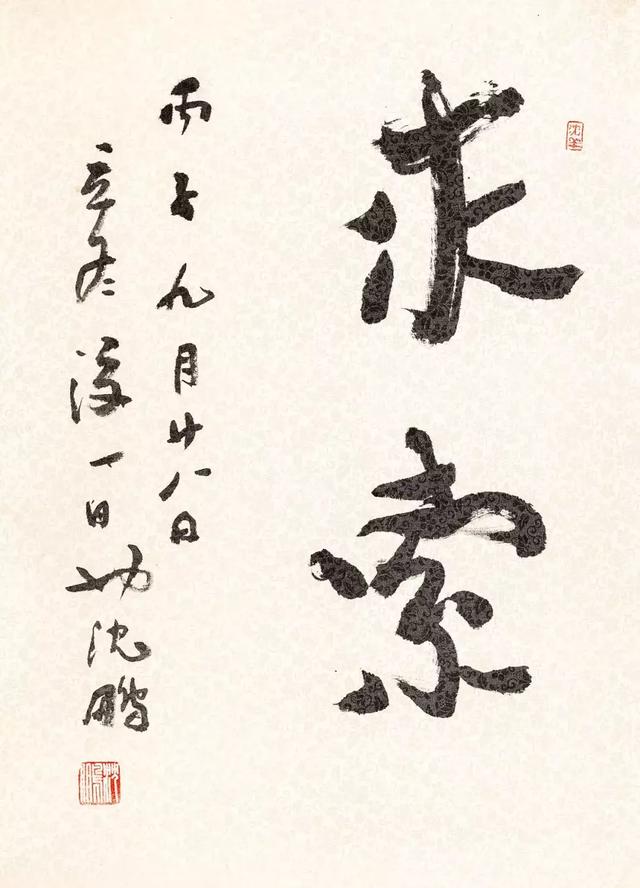 求索
丙子九月廿八日
立冬後一日也沈鵬